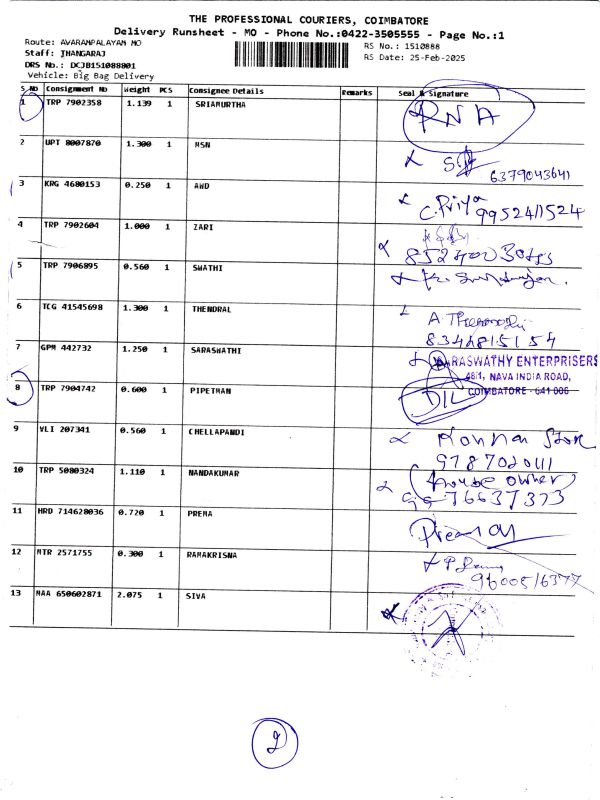 THE PROFESSIONAL COURIERS, COIMBATORE
Delivery Runsheet - MO - Phone No.:0422-3505555 - Page No.:1
Route: AVARAMPALAYAM MO
Staff: THANGARAJ
DRS No.: DCJB151088801
Vehicle: Big Bag Delivery
RS No.: 1510888
RS Date: 25-Feb-2025
S No Consignment No Weight PCS Consignee Details Remarks Seal & Signature
1 TRP 7902358 1.139 1 SRIAMURTHA RNA
2 UPT 8007870 1.300 1 MSN
6379043641
3 KRG 4680153 0.250 1 AWD
C. Priya 9952411524
4 TRP 7902604 1.000 1 ZARI
5 TRP 7906895 0.560 1 SWATHI
6 TCG 41545698 1.300 1 THENDRAL
8344815154
7 GPM 442732 1.250 1 SARASWATHI
SARASWATHY ENTERPRISERS
48/1, NAVA INDIA ROAD,
COIMBATORE - 641 006
8 TRP 7904742 0.600 1 PIPETMAN
9 VLI 207341 0.560 1 CHELLAPANDI
9787020111
10 TRP 5080324 1.110 1 NANDAKUMAR (house owner)
11 HRD 714628036 0.720 1 PREMA
12 MTR 2571755 0.300 1 RAMAKRISNA
9600516377
13 MAA 650602871 2.075 1 SIVA
2